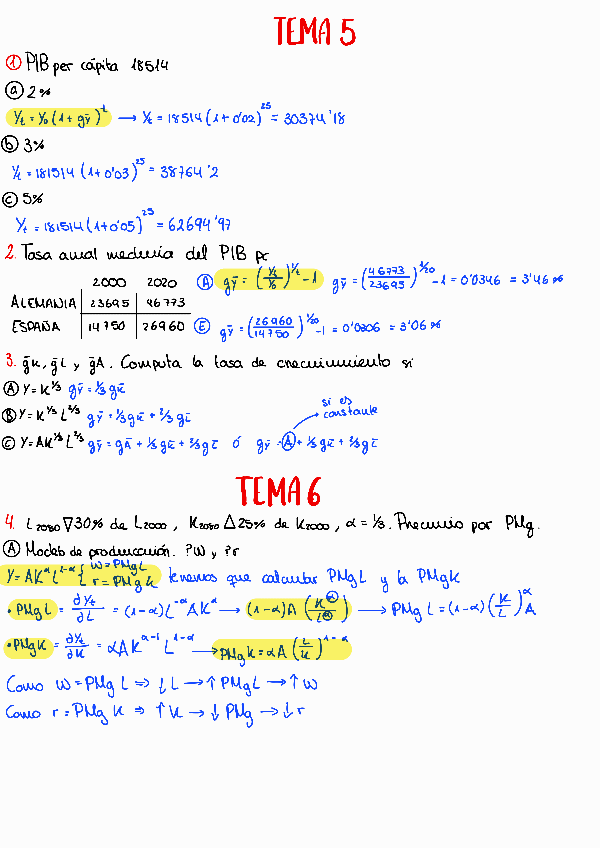 TEMA 5
① PIB per cápita 18514
ⓐ 2%
Y_t = Y_0 (1 + gȳ)^t → Y_t = 18514 (1 + 0'02)^25 = 30374'18
ⓑ 3%
Y_t = 181514 (1 + 0'03)^25 = 38764'2
ⓒ 5%
Y_t = 181514 (1 + 0'05)^25 = 62694'97
2. Tasa anual media del PIB pc
2000 2020 Ⓐ gȳ = (Y_t/Y_0)^1/t - 1 gȳ = (46773/23695)^1/20 - 1 = 0'0346 = 3'46%
ALEMANIA 23695 46773
ESPAÑA 14750 26960 Ⓔ gȳ = (26960/14750)^1/20 - 1 = 0'0306 = 3'06%
3. ḡK, ḡL y ḡA. Computa la tasa de crecimiento si
Ⓐ Y = K^1/3 gȳ = 1/3 gK̄
Ⓑ Y = K^1/3 L^2/3 gȳ = 1/3 gK̄ + 2/3 gL̄
si es constante
Ⓒ Y = AK^1/3 L^2/3 gȳ = gĀ + 1/3 gK̄ + 2/3 gL̄ ó gȳ = Ⓐ + 1/3 gK̄ + 2/3 gL̄
TEMA 6
4. L2050 ∇30% de L2000, K2050 Δ25% de K2000, α = 1/3. Precio por PMg.
Ⓐ Modelo de producción. ?W y ?r
Y = AK^α L^1-α { W = PMgL
r = PMgK tenemos que calcular PMgL y la PMgK
• PMgL = ∂Yt/∂L = (1-α)L^-α AK^α → (1-α)A (K^α/L^α) → PMgL = (1-α)(K/L)^α A
• PMgK = ∂Yt/∂K = αAK^α-1 L^1-α → PMgK = αA (L/K)^1-α
Como W = PMgL ⇒ ↓L → ↑PMgL → ↑W
Como r = PMgK ⇒ ↑K → ↓PMg → ↓r